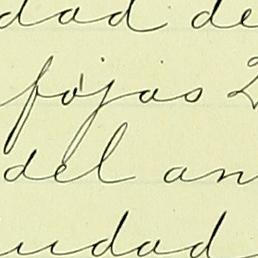 dad de
fojas 2
del an
udad